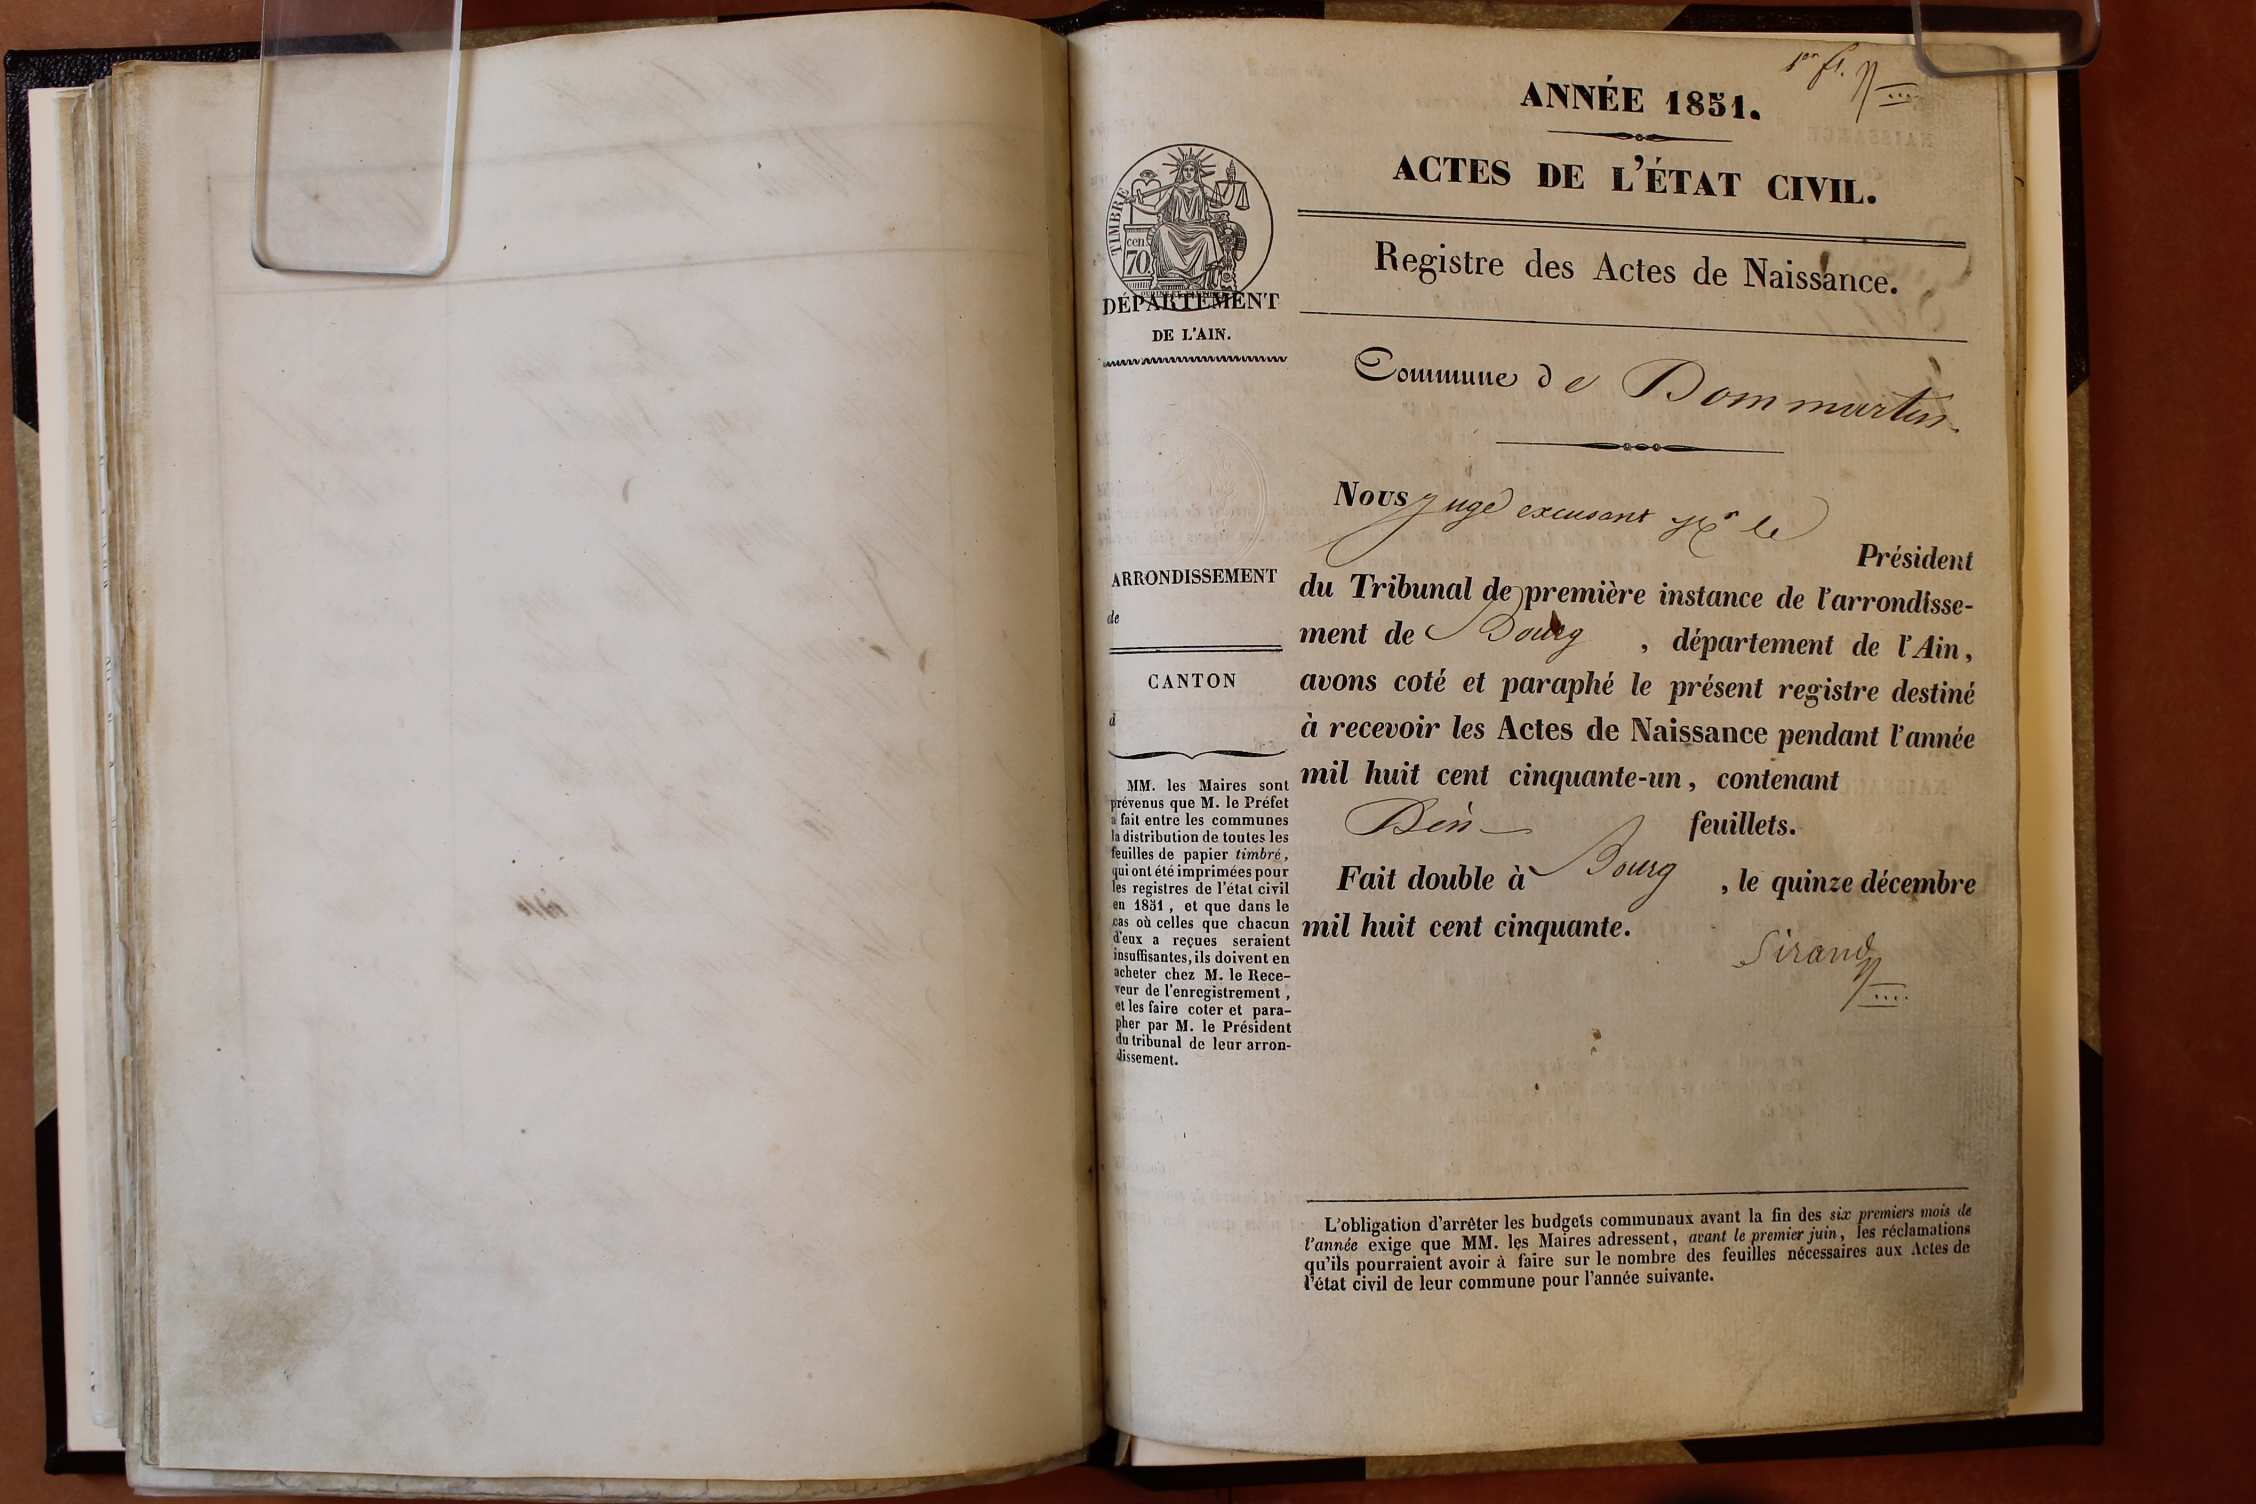 1er ft.
ANNÉE 1851.
ACTES DE L'ÉTAT CIVIL.
Registre des Actes de Naissance.
TIMBRE
70 cen
DÉPARTEMENT
DE L'AIN.
Commune de Dommartin
ARRONDISSEMENT
de
CANTON
d
MM. les Maires sont
prévenus que M. le Préfet
a fait entre les communes
la distribution de toutes les
feuilles de papier timbré,
qui ont été imprimées pour
les registres de l'état civil
en 1851, et que dans le
cas où celles que chacun
d'eux a reçues seraient
insuffisantes, ils doivent en
acheter chez M. le Rece-
veur de l'enregistrement,
et les faire coter et para-
pher par M. le Président
du tribunal de leur arron-
dissement.
Nous juge excusant Mr le
Président
du Tribunal de première instance de l'arrondisse-
ment de Bourg, département de l'Ain,
avons coté et paraphé le présent registre destiné
à recevoir les Actes de Naissance pendant l'année
mil huit cent cinquante-un, contenant
feuillets.
Fait double à Bourg, le quinze décembre
mil huit cent cinquante.
Sirand
L'obligation d'arrêter les budgets communaux avant la fin des six premiers mois de
l'année exige que MM. les Maires adressent, avant le premier juin, les réclamations
qu'ils pourraient avoir à faire sur le nombre des feuilles nécessaires aux Actes de
l'état civil de leur commune pour l'année suivante.